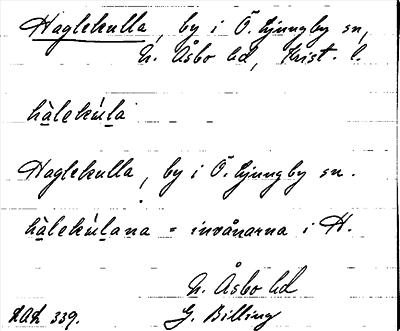 Haglekulla, by i Ö. Ljungby sn,
N. Åsbo hd, Krist. l.
hàlekúla
Haglekulla, by i Ö. Ljungby sn.
hàlekúlana = invånarna i H.
N. Åsbo hd
339. G. Billing